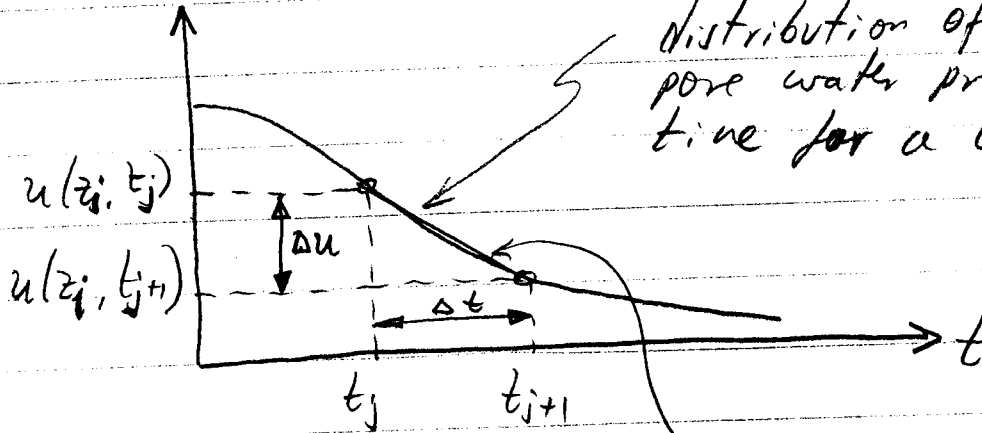 distribution of
pore water pr
time for a
u(zj, tj)
Δu
u(zj, tj+1)
Δt
t
tj
tj+1